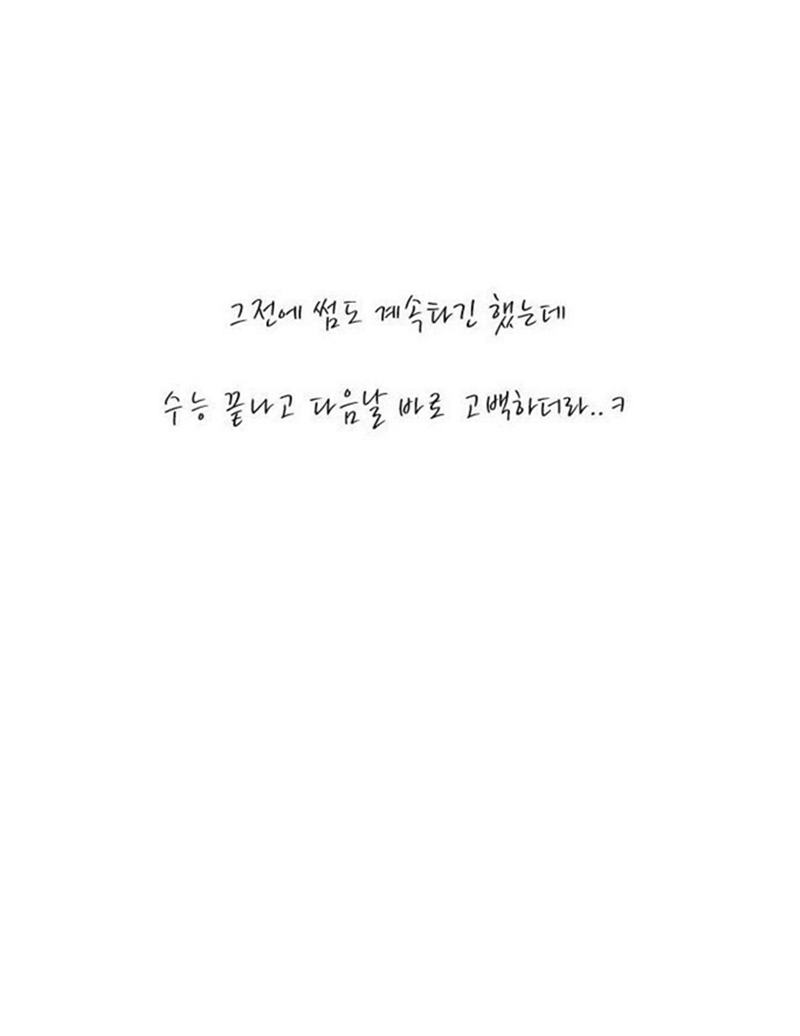 그전에 썸도 계속타긴 했는데
수능 끝나고 다음날 바로 고백하더라..ㅋ